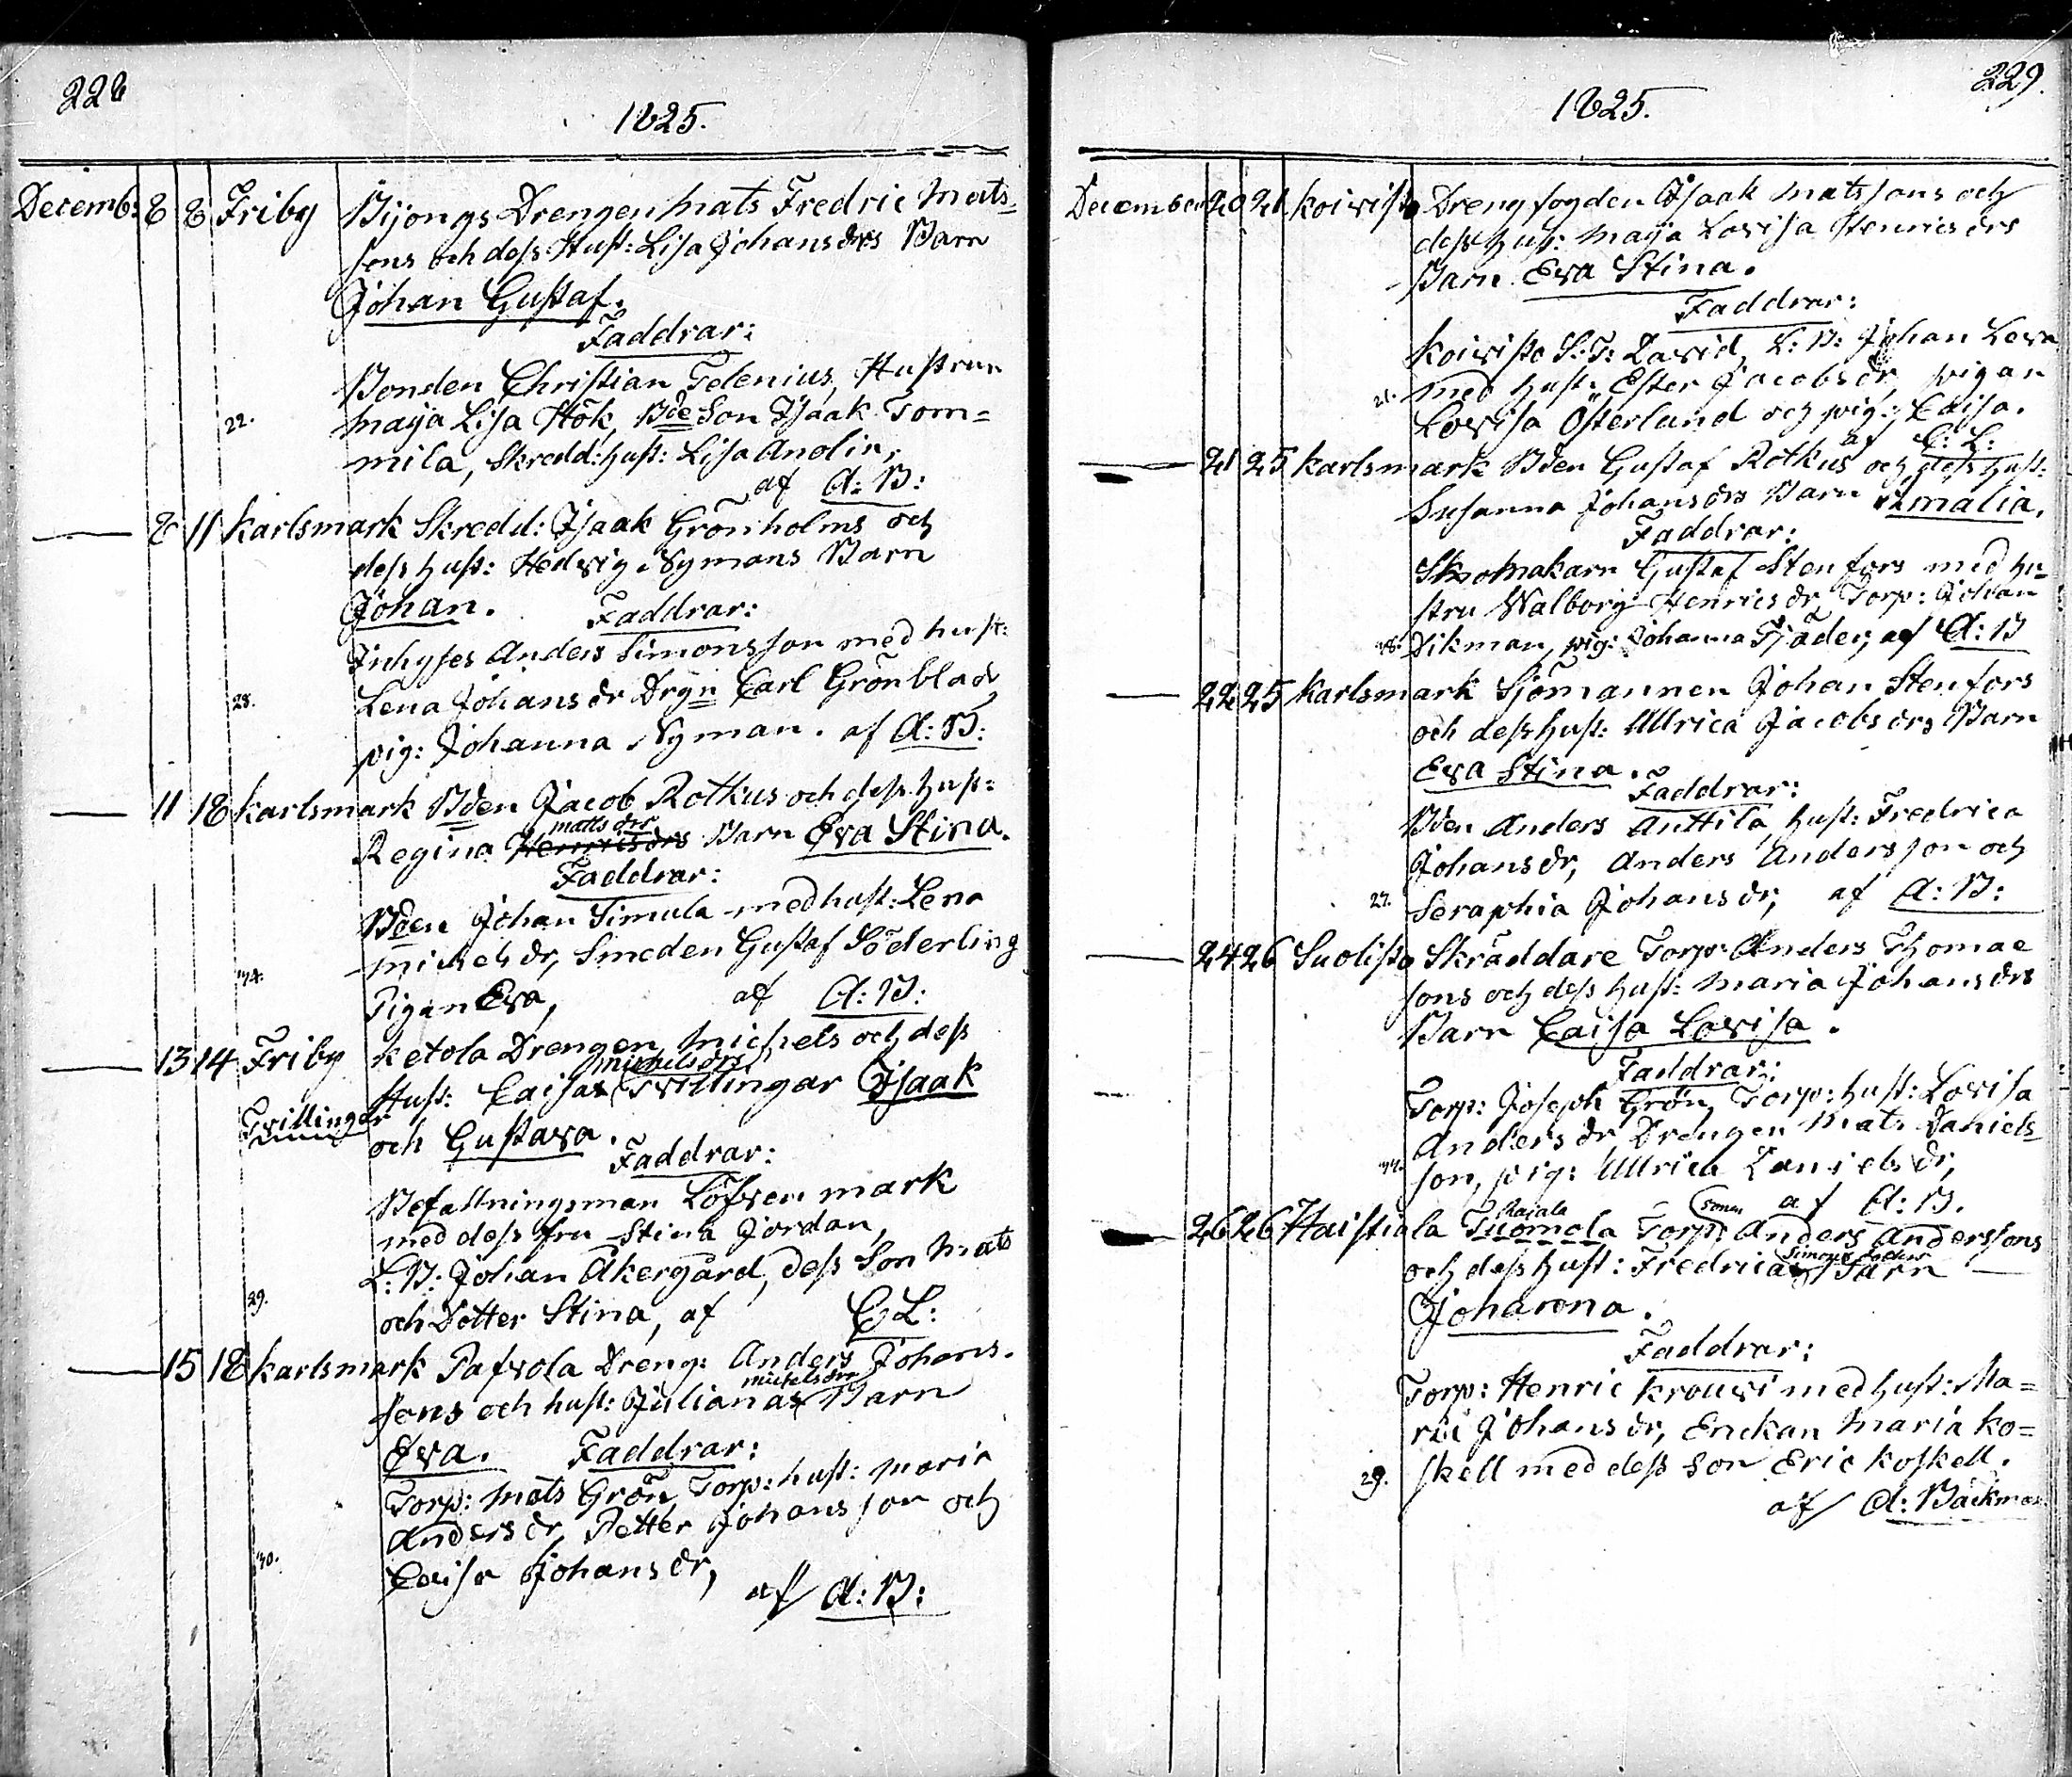 228
1825.
Decemb: 8 8 Friby Bijongs Drengen Mats Fredric Mats=
sons och dess Hust: Lisa Johans drs Barn
Johan Gustaf.
Faddrar:
Bonden Christian Telenius, Hustrun
22. Maija Lisa Hök, Bde Son Isaak Tom=
mila, Skredd: hust: Lisa Anolin,
af A: B:
8 11 Karlsmark Skredd: Isaak Grönholms och
dess hust: Hedvig Nymans Barn
Johan. Faddrar:
Inhyses Anders Simonsson med hust:
28. Lena Johans dr Drgn Carl Grönblad,
pig: Johanna Nyman. af A: B:
11 18 Karlsmark Bden Jacob Rotkus och dess hust:
matts drs
Regina Henrics drs Barn Eva Stina.
Faddrar:
Bden Johan Simula med hust: Lena
Michels dr, Smeden Gustaf Söderling
34. Pigan Eva, af A: B:
13 14 Friby Ketola Drengen Michels och dess
michelsdrs
Hust: Caisas Tvillingar Isaak
Tvillingar
och Gustava.
Faddrar:
Befallningsman Löfvenmark
med dess fru Stina Jordan,
L: B: Johan Åkergård, dess Son Mats
29. och Dotter Stina, af C L:
15 18 Karlsmark Pafvola Dreng: Anders Johans.
michelsdrs
sons och hust: Julianas Barn
Eva. Faddrar:
Torp: Mats Grön, Torp: hust: Maria
Anders dr, Petter Johansson och
30. Caisa Johans dr,
af A: B:
229.
1825.
December 20 21 Koivisto Drengfogden Isaak Matssons och
dess hust: Maija Lovisa Henrics drs
Barn Eva Stina.
Faddrar:
Koivisto S: T: David, L: B: Johan Leva
21. med hust: Ester Jacobs dr, pigan
Lovisa Österlund och pig: Caisa.
af C: L:
21 25 Karlsmark Bden Gustaf Rotkus och dess hust:
Susanna Johans drs Barn Amalia.
Faddrar:
Skomakarn Gustaf Stenfors med hu=
stru Walborg Henrics dr, Torp: Johan
28. Dikman, pig: Johanna Tjäder, af A: B
22 25 Karlsmark Sjömannen Johan Stenfors
och dess hust: Ullrica Jacobs drs Barn
Eva Stina.
Faddrar:
Bden Anders Anttila, hust: Fredrica
Johans dr, Anders Andersson och
27. Seraphia Johans dr, af A: B:
24 26 Suolisto Skräddare Torp: Anders Thomae
sons och dess hust: Maria Johans drs
Barn Caisa Lovisa.
Faddrar:
Torp: Joseph Grön, Torp: hust: Lovisa
Anders dr, Drengen Mats Daniels
son, pig: Ullrica Daniels dr,
af A: B.
Rajala Sonen
26 26 Haistiala Tuomola Torp: Anders Anderssons
Simons doters
och dess hust: Fredricas Barn
Johanna.
Faddrar:
Torp: Henric Krouvi med hust: Ma=
ria Johans dr, Enckan Maria Ko=
29. skell med dess son Eric Koskell.
af A: Bäckman